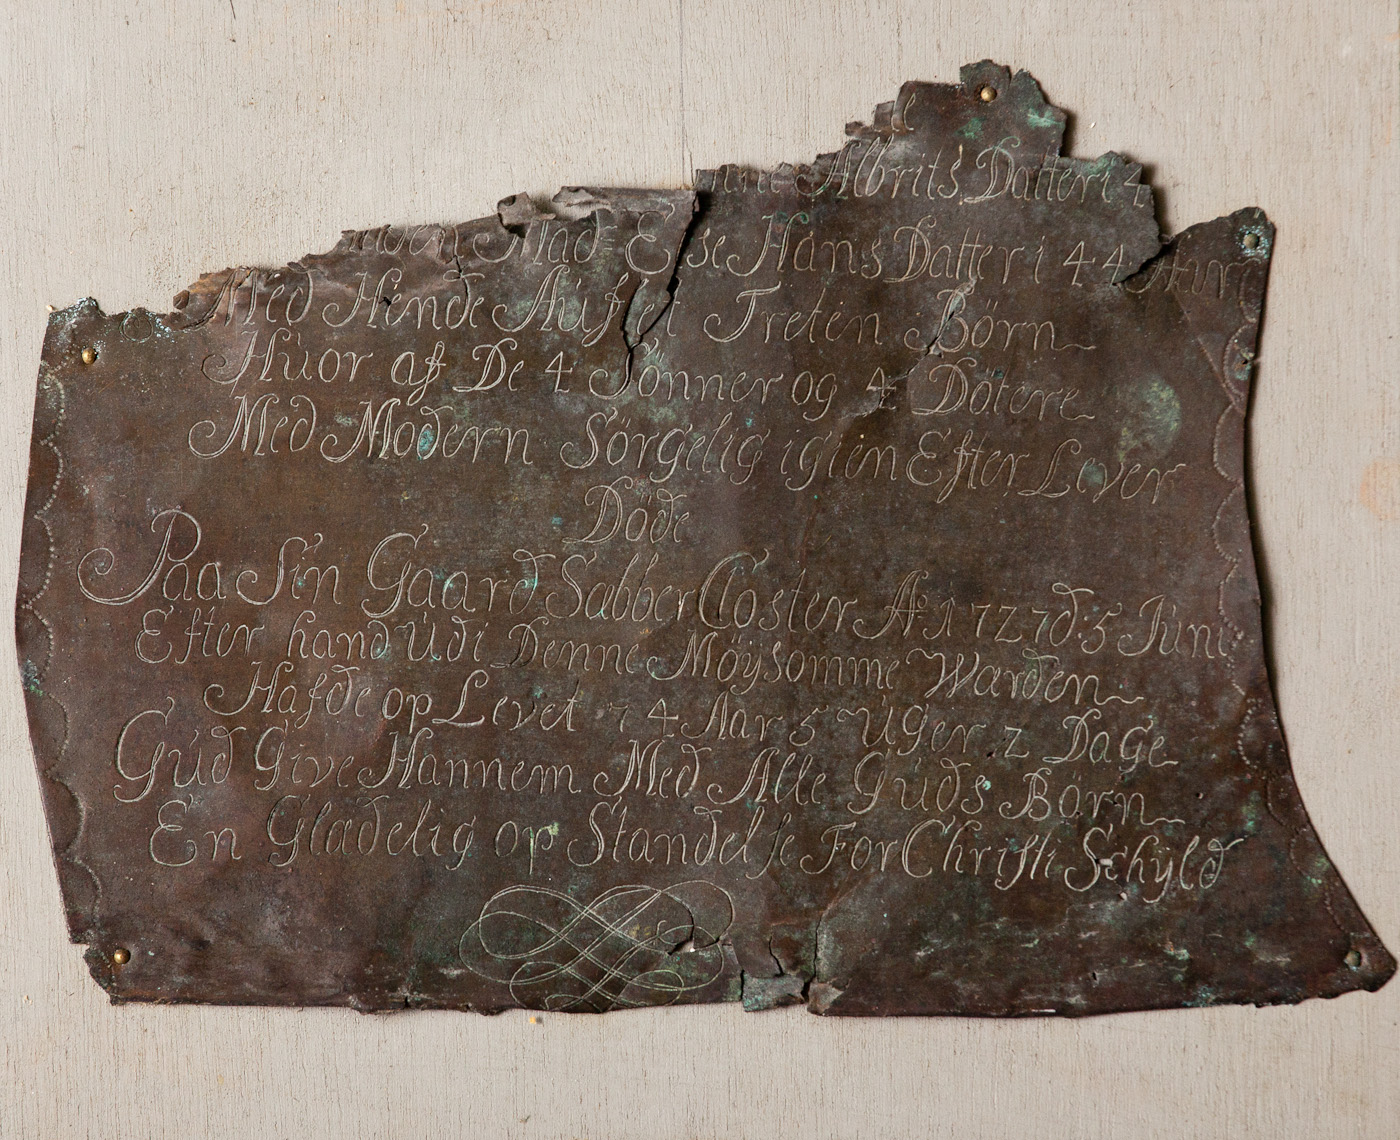 Albrits Datter i 4
Else Hans Datter i 44 Aar
Med Hende Auflet Treten Börn
Huor af De 4 Sönner og 4 Dötere
Med Modern Sörgelig igien Efter Lever
Döde
Paa Sin Gaard Sæbber Closter A:o 1727 d: 5 Juni
Efter hand Udi Denne Möysomme Wærden
Hafde op Levet 74 Aar 5 Uger 2 Dage
Gud Give Hannem Med Alle Guds Börn
En Glædelig op Standelse For Christi Schyld